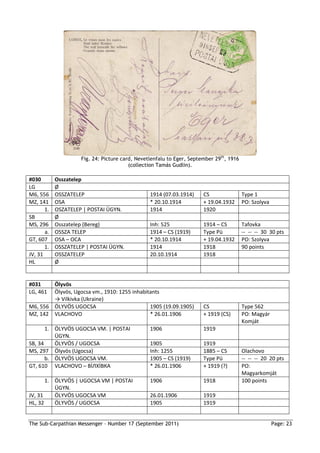 Fig. 24: Picture card, Nevetlenfalu to Eger, September 29th, 1916
(collection Tamás Gudlin).
#030 Osszatelep
LG Ø
M6, 556 OSSZATELEP 1914 (07.03.1914) CS Type 1
MZ, 141 OSA * 20.10.1914 + 19.04.1932 PO: Szolyva
1. OSZATELEP | POSTAI ÜGYN. 1914 1920
SB Ø
MS, 296 Osszatelep (Bereg) Inh: 525 1914 – CS Tafovka
a. OSSZA TELEP 1914 – CS (1919) Type Pü -- -- -- 30 30 pts
GT, 607 OSA – OCA * 20.10.1914 + 19.04.1932 PO: Szolyva
1. OSSZATELEP | POSTAI ÜGYN. 1914 1918 90 points
JV, 31 OSSZATELEP 20.10.1914 1918
HL Ø
#031 Ölyvös
LG, 461 Ölyvös, Ugocsa vm., 1910: 1255 inhabitants
→ Vilkivka (Ukraine)
M6, 556 ÖLYVÖS UGOCSA 1905 (19.09.1905) CS Type 562
MZ, 142 VLACHOVO * 26.01.1906 + 1919 (CS) PO: Magyár
Komját
1. ÖLYVÖS UGOCSA VM. | POSTAI 1906 1919
ÜGYN.
SB, 34 ÖLYVÖS / UGOCSA 1905 1919
MS, 297 Ölyvös (Ugocsa) Inh: 1255 1885 – CS Olachovo
b. ÖLYVÖS UGOCSA VM. 1905 – CS (1919) Type Pü -- -- -- 20 20 pts
GT, 610 VLACHOVO – ВІЛХІВКА * 26.01.1906 + 1919 (?) PO:
Magyarkomját
1. ÖLYVÖS | UGOCSA VM | POSTAI 1906 1918 100 points
ÜGYN.
JV, 31 ÖLYVÖS UGOCSA VM 26.01.1906 1919
HL, 32 ÖLYVÖS / UGOCSA 1905 1919
The Sub-Carpathian Messenger – Number 17 (September 2011) Page: 23